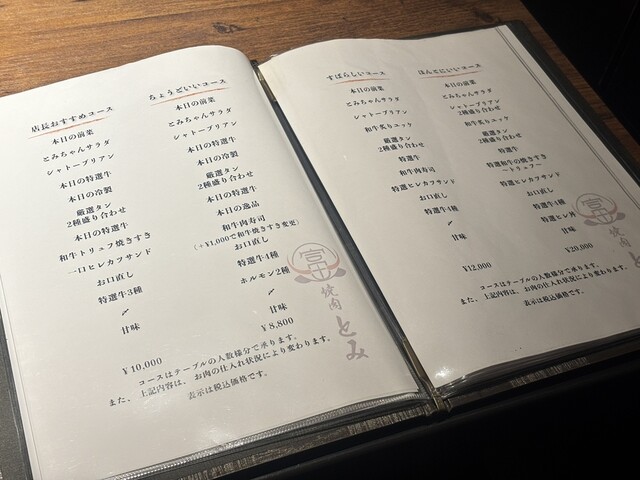 店長おすすめコース
本日の前菜
とみちゃんサラダ
シャトーブリアン
本日の特選牛
本日の冷製
厳選タン
2種盛り合わせ
本日の特選牛
和牛トリュフ焼きすき
一口ヒレカツサンド
お口直し
特選牛3種
〆
甘味
¥10,000
ちょうどいいコース
本日の前菜
とみちゃんサラダ
シャトーブリアン
本日の特選牛
本日の冷製
厳選タン
2種盛り合わせ
本日の特選牛
本日の逸品
和牛肉寿司
(+¥1,000で和牛焼きすき変更)
お口直し
特選牛4種
ホルモン2種
〆
甘味
¥8,800
コースはテーブルの人数様分で承ります。
また、上記内容は、お肉の仕入れ状況により変わります。
表示は税込価格です。
富
焼肉とみ
すばらしいコース
本日の前菜
とみちゃんサラダ
シャトーブリアン
和牛炙りユッケ
厳選タン
2種盛り合わせ
特選牛
和牛肉寿司
特選ヒレカツサンド
お口直し
特選牛4種
〆
甘味
¥12,000
ほんとにいいコース
本日の前菜
とみちゃんサラダ
シャトーブリアン
2種盛り合わせ
和牛炙りユッケ
厳選タン
2種盛り合わせ
特選牛
特選和牛の焼きすき
～トリュフ～
特選ヒレカツサンド
お口直し
特選牛4種
特選ヒレ丼
甘味
¥20,000
コースはテーブルの人数様分で承ります。
また、上記内容は、お肉の仕入れ状況により変わります。
表示は税込価格です。
富
焼肉と